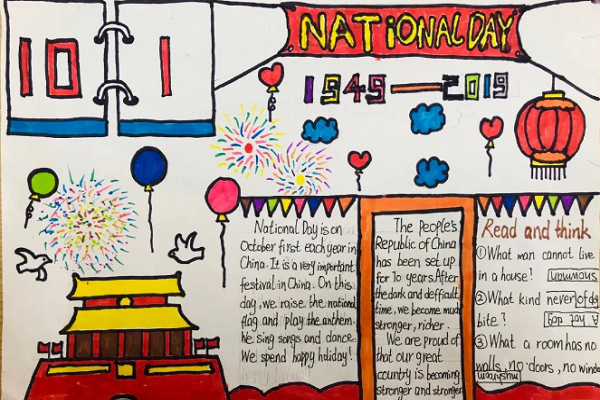 10 1
NATIONAL DAY
1949—2019
National Day is on
October first each year in
China. It is a very important
festival in China. On this
day, we raise the national
flag and play the anthem.
We sing songs and dance.
We spend happy holiday!
The people's
Republic of China
has been set up
for 70 years. After
the dark and
time, we become much
stronger, richer.
We are proud of
that our great
country is becoming
stronger and stronger
Read and think
①What man cannot live
in a house! snowman
②What kind never of dog
bite? A hot dog
③What a room has no
walls, no doors, no windo
mushroom